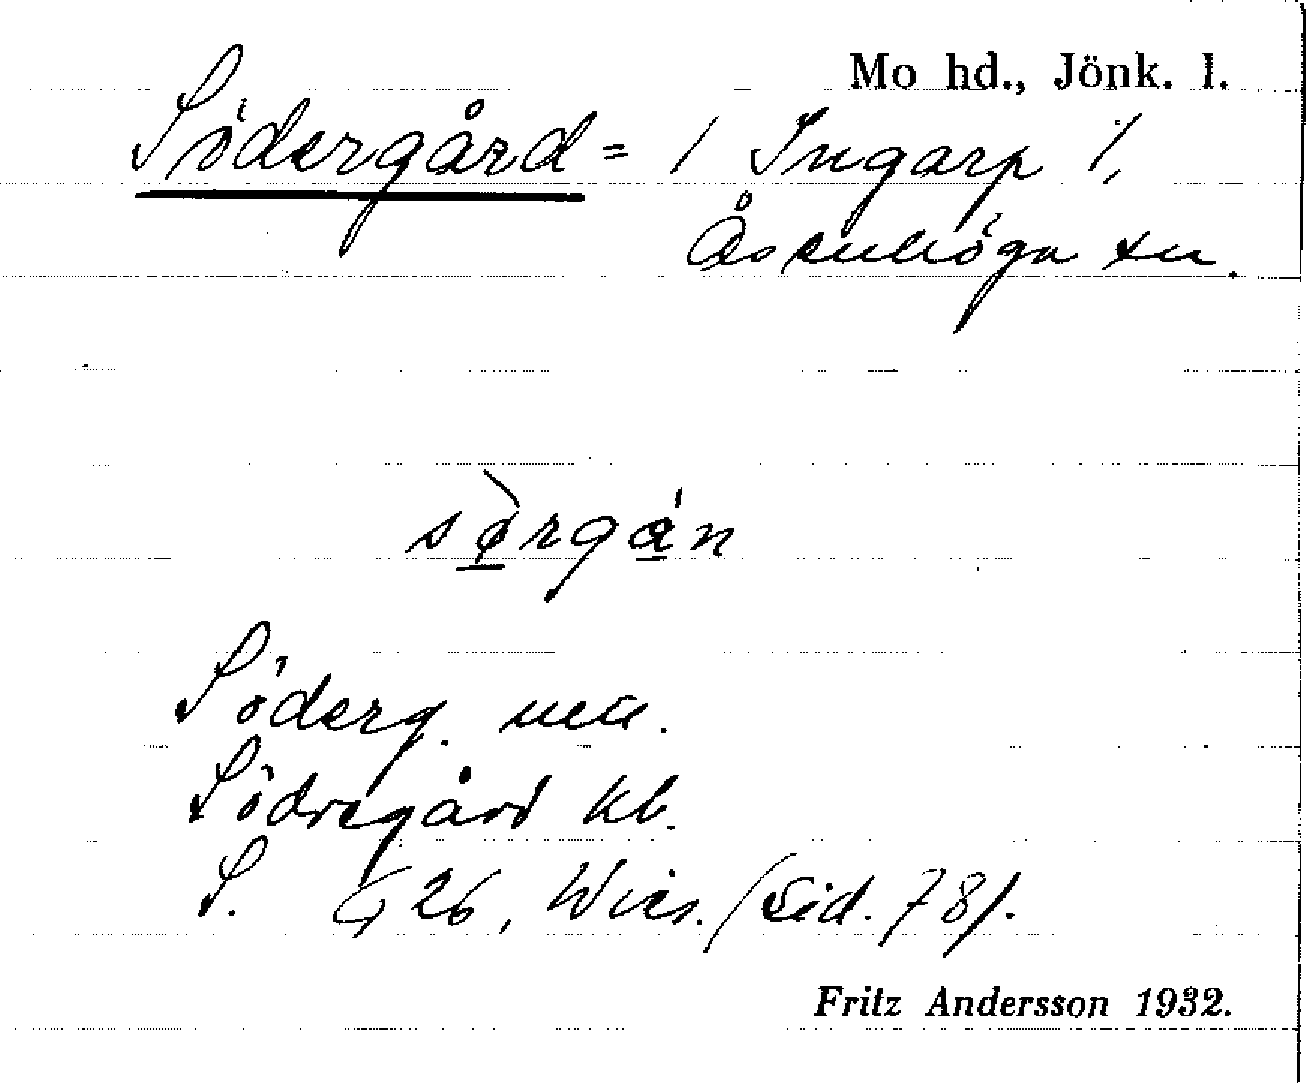 Mo hd., Jönk. l.
Södergård = / Ingarp /,
Åsenhöga sn.
sørgån
Söderg.
Södregård kb.
S. G 26, Wies. (Sid. 78).
Fritz Andersson 1932.